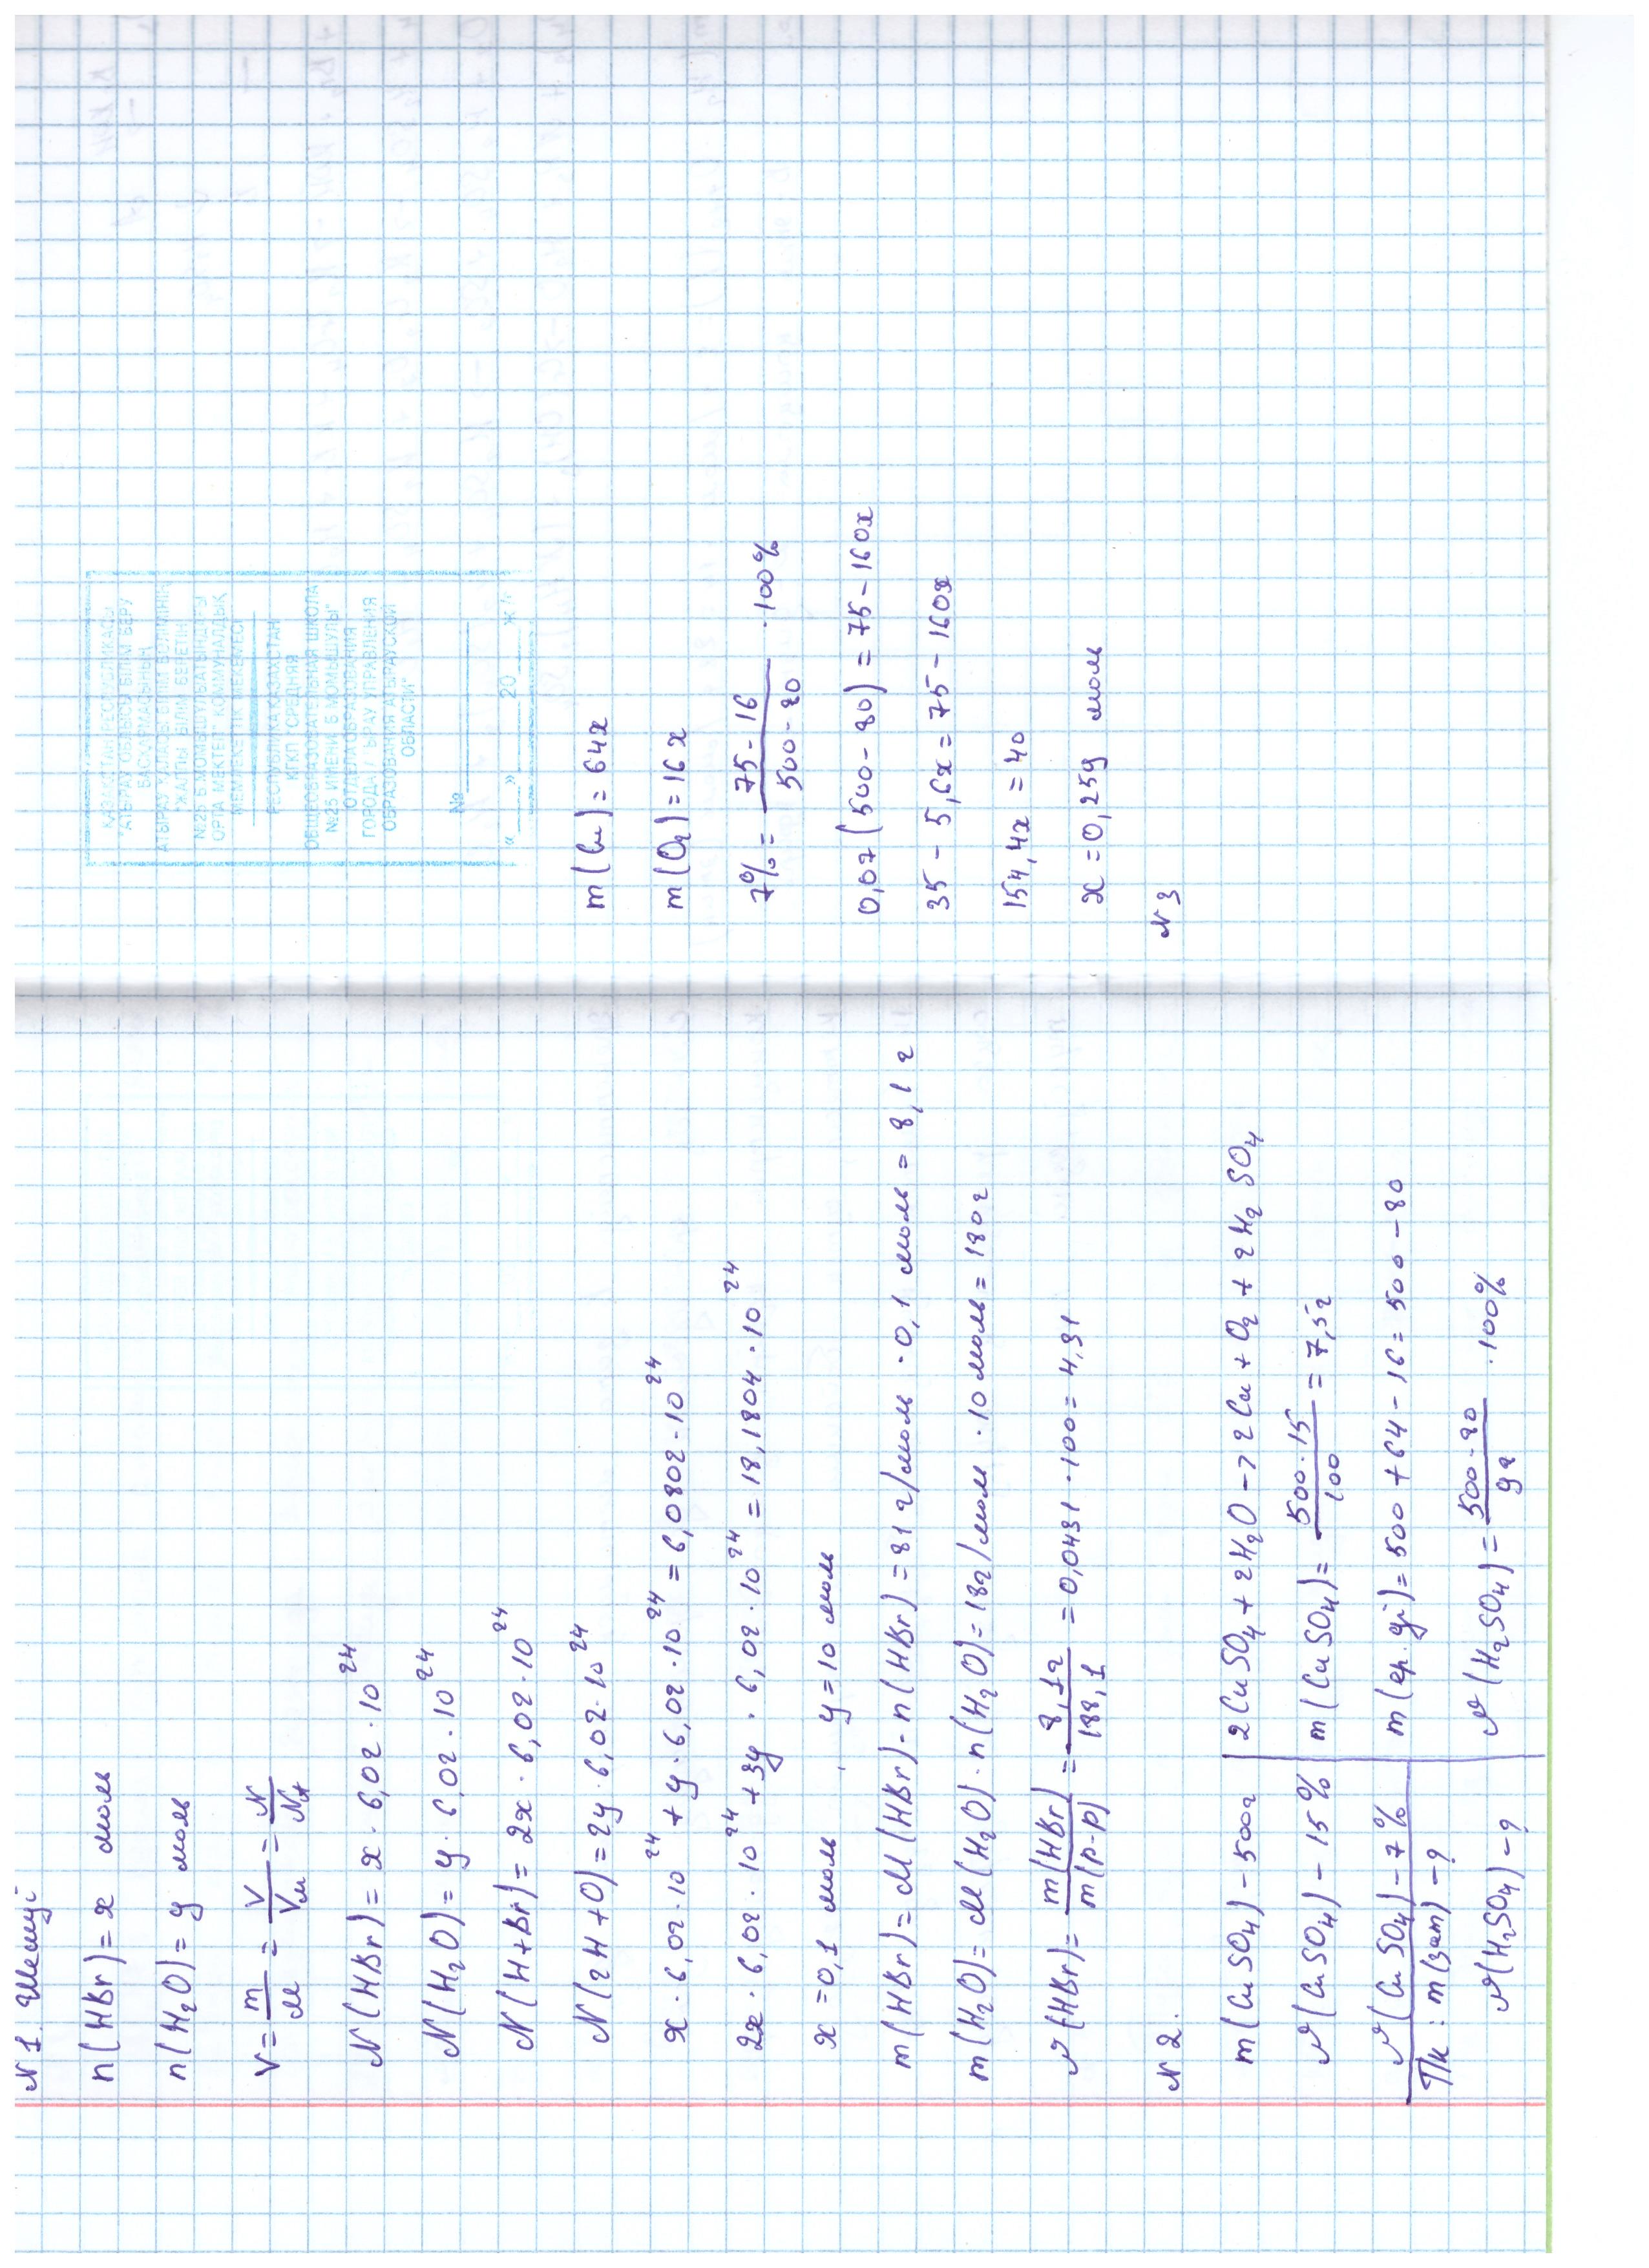 N 1. Шешуі
n(HBr) = x моль
n(H₂O) = y моль
V = m/M = V/Vм = N/NA
N(HBr) = x · 6,02 · 10²⁴
N(H₂O) = y · 6,02 · 10²⁴
N(H+Br) = 2x · 6,02 · 10²⁴
N(2H+O) = 2y · 6,02 · 10²⁴
x · 6,02 · 10²⁴ + y · 6,02 · 10²⁴ = 6,0802 · 10²⁴
2x · 6,02 · 10²⁴ + 3y · 6,02 · 10²⁴ = 18,1804 · 10²⁴
x = 0,1 моль , y = 10 моль
m(HBr) = M(HBr) · n(HBr) = 81 г/моль · 0,1 моль = 8,1 г
m(H₂O) = M(H₂O) · n(H₂O) = 18г/моль · 10 моль = 180 г
ω(HBr) = m(HBr)/m(р-р) = 8,1г/188,1 = 0,0431 · 100 = 4,31
N 2.
m(CuSO₄) – 500г
ω(CuSO₄) – 15%
ω(CuSO₄) – 7%
Тк: m(зат) – ?
ω(H₂SO₄) – ?
2CuSO₄ + 2H₂O -> 2Cu + O₂ + 2H₂SO₄
m(CuSO₄) = 500·15/100 = 7,5г
m(ер.ді) = 500 + 64 – 16 = 500 – 80
ω(H₂SO₄) = 500-80/98 · 100%
ҚАЗАҚСТАН РЕСПУБЛИКАСЫ
"АТЫРАУ ОБЛЫСЫ БІЛІМ БЕРУ
БАСҚАРМАСЫНЫҢ
АТЫРАУ ҚАЛАСЫ БІЛІМ БӨЛІМІНІҢ
"ЖАЛПЫ БІЛІМ БЕРЕТІН
№25 Б.МОМЫШҰЛЫ АТЫНДАҒЫ
ОРТА МЕКТЕП" КОММУНАЛДЫҚ
МЕМЛЕКЕТТІК МЕКЕМЕСІ
РЕСПУБЛИКА КАЗАХСТАН
КГКП "СРЕДНЯЯ
ОБЩЕОБРАЗОВАТЕЛЬНАЯ ШКОЛА
№25 ИМЕНИ Б.МОМЫШУЛЫ"
ОТДЕЛА ОБРАЗОВАНИЯ
ГОРОДА АТЫРАУ УПРАВЛЕНИЯ
ОБРАЗОВАНИЯ АТЫРАУСКОЙ
ОБЛАСТИ"
№
« » 20 ж/г
m(Cu) = 64x
m(O₂) = 16x
7% = 75-16/500-80 · 100%
0,07(500-80) = 75 – 160x
35 – 5,6x = 75 – 160x
154,4x = 40
x = 0,259 моль
N 3